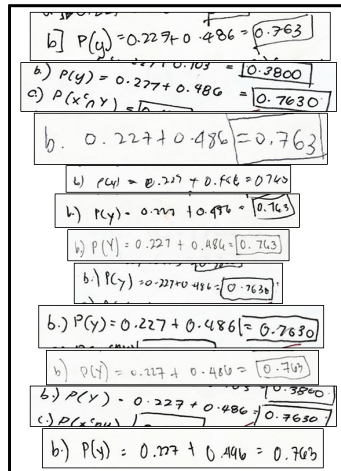 b] P(y) = 0.227+0.486 = 0.763
+0.103 = 0.3800
b.) P(y) = 0.277+0.486 = 0.7630
c.) P(XᶜnY) =
b. 0.227+0.486 = 0.763
b) P(y) = 0.227 + 0.486 = 0.763
b.) P(y) = 0.227 + 0.486 = 0.763
b) P(Y) = 0.227 + 0.486 = 0.763
b.) P(y) = 0.227+0.486 = 0.7630
b.) P(y) = 0.227 + 0.486 = 0.7630
b) P(Y) = 0.227 + 0.486 = 0.763
0.3800
b.) P(Y) = 0.227+0.486 = 0.7630
c.) P(Xᶜny)
b.) P(y) = 0.277 + 0.496 = 0.763